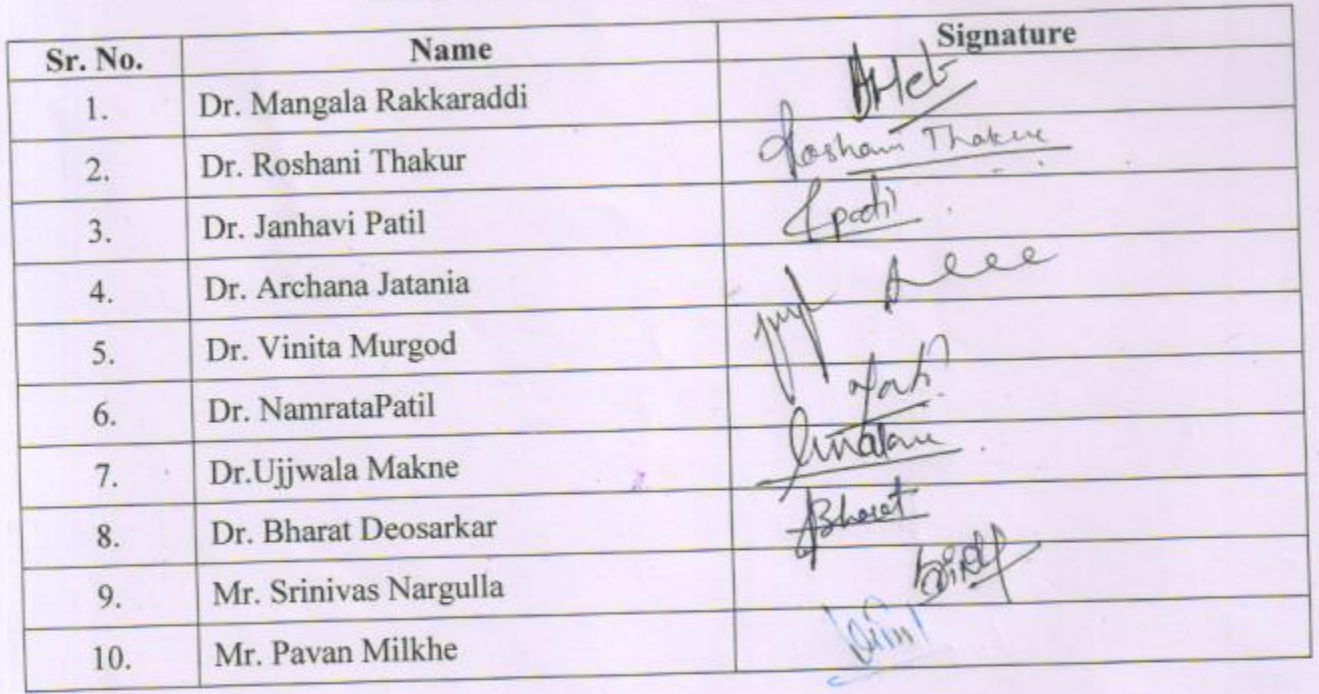 Sr. No. Name Signature
1. Dr. Mangala Rakkaraddi
2. Dr. Roshani Thakur Roshani Thakur
3. Dr. Janhavi Patil Jpatil
4. Dr. Archana Jatania
5. Dr. Vinita Murgod
6. Dr. NamrataPatil
7. Dr.Ujjwala Makne
8. Dr. Bharat Deosarkar Bharat
9. Mr. Srinivas Nargulla
10. Mr. Pavan Milkhe